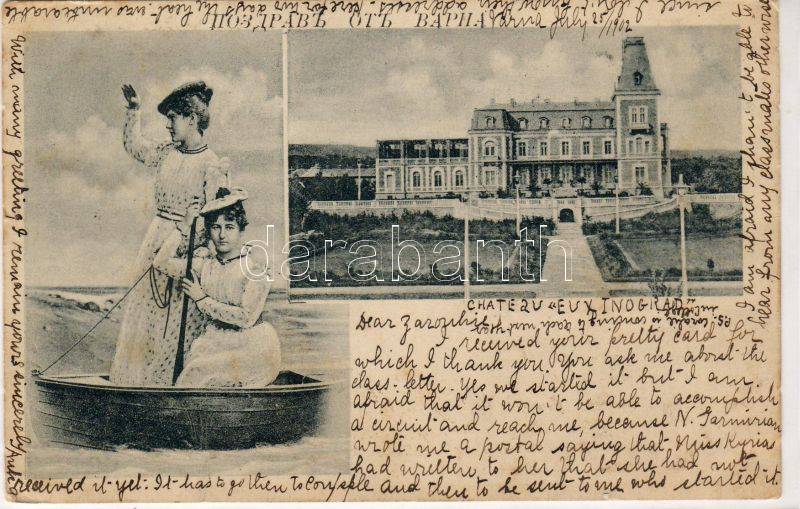 ПОЗДРАВЪ ОТЪ ВАРНА
Varna July 25/1902
CHATEAU «EUXINOGRAD»
Dear Zarouhie,
I received your pretty card for
which I thank you. You ask me about the
class-letter. Yes we started it but I am
afraid that it won't be able to accomplish
a circuit and reach me, because N. Tarmirian
wrote me a postal saying that Miss Kyrias
had written to her that she had not
received it yet. It has to go then to and then to be sent to me who started it.
I am afraid I shan't be able to
hear from any classmates otherwise
since I don't know their address. here for two days the heat was unbearable
With many greetings I remain yours sincerely
P.S.
darabanth